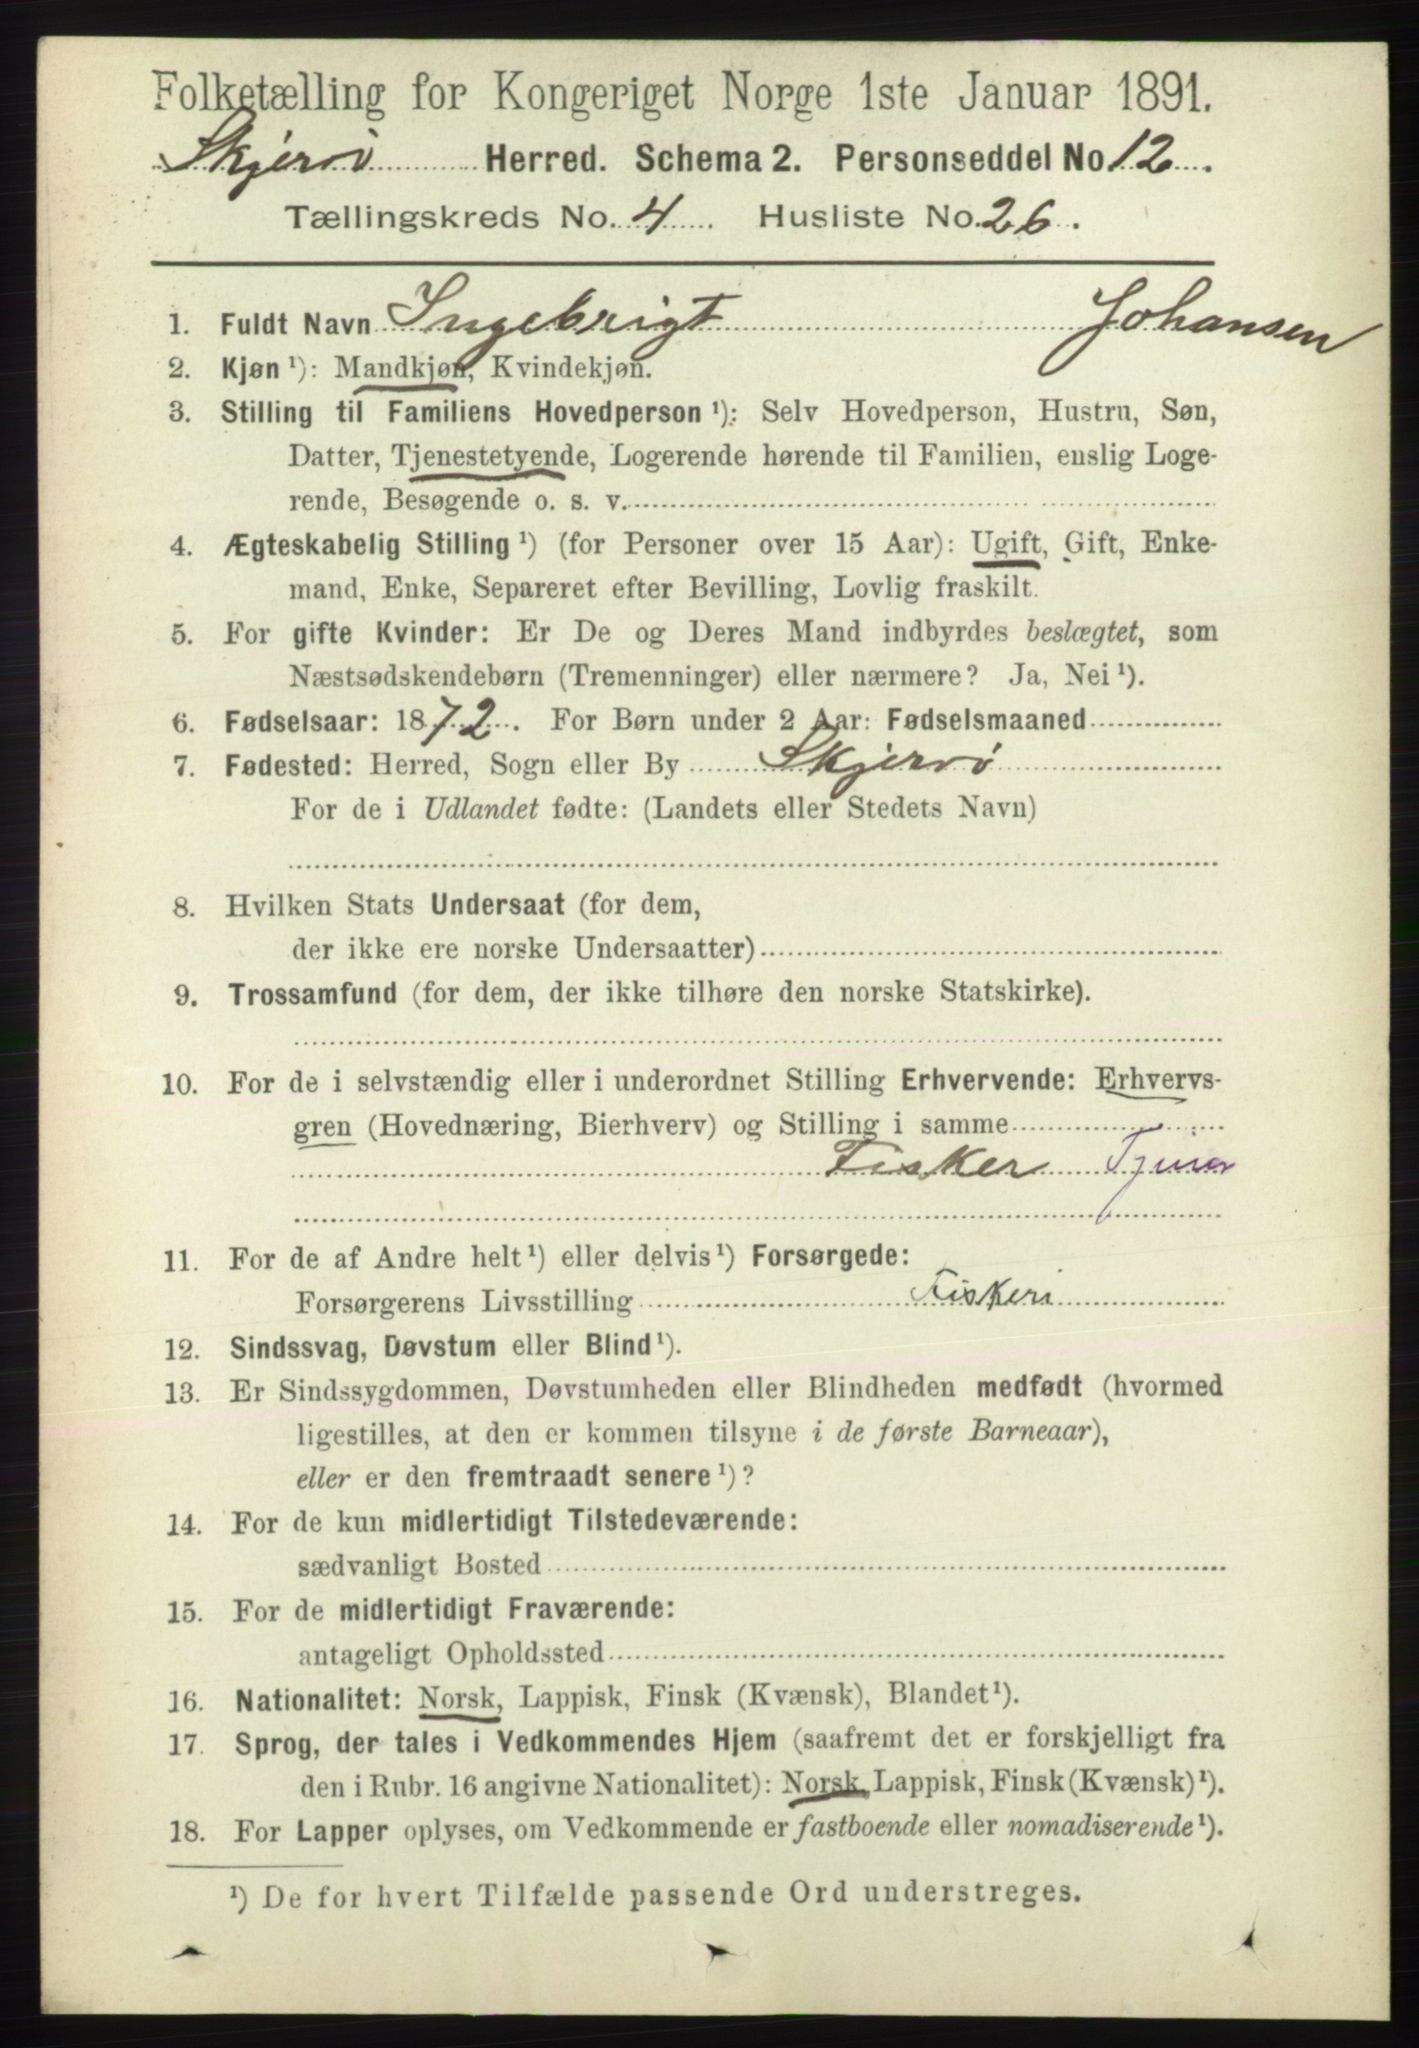 Folketælling for Kongeriget Norge 1ste Januar 1891.
Skjervø Herred. Schema 2. Personseddel No. 12.
Tællingskreds No. 4. Husliste No. 26.
1. Fuldt Navn Ingebrigt Johansen
2. Kjøn ¹): Mandkjøn, Kvindekjøn.
3. Stilling til Familiens Hovedperson ¹): Selv Hovedperson, Hustru, Søn,
Datter, Tjenestetyende, Logerende hørende til Familien, enslig Loge-
rende, Besøgende o. s. v.
4. Ægteskabelig Stilling ¹) (for Personer over 15 Aar): Ugift, Gift, Enke-
mand, Enke, Separeret efter Bevilling, Lovlig fraskilt.
5. For gifte Kvinder: Er De og Deres Mand indbyrdes beslægtet, som
Næstsødskendebørn (Tremenninger) eller nærmere? Ja, Nei ¹).
6. Fødselsaar: 1872. For Børn under 2 Aar: Fødselsmaaned
7. Fødested: Herred, Sogn eller By Skjervø
For de i Udlandet fødte: (Landets eller Stedets Navn)
8. Hvilken Stats Undersaat (for dem,
der ikke ere norske Undersaatter)
9. Trossamfund (for dem, der ikke tilhøre den norske Statskirke).
10. For de i selvstændig eller i underordnet Stilling Erhvervende: Erhvervs-
gren (Hovednæring, Bierhverv) og Stilling i samme
Fisker
11. For de af Andre helt ¹) eller delvis ¹) Forsørgede:
Forsørgerens Livsstilling Fiskeri
12. Sindssvag, Døvstum eller Blind ¹).
13. Er Sindssygdommen, Døvstumheden eller Blindheden medfødt (hvormed
ligestilles, at den er kommen tilsyne i de første Barneaar),
eller er den fremtraadt senere ¹)?
14. For de kun midlertidigt Tilstedeværende:
sædvanligt Bosted
15. For de midlertidigt Fraværende:
antageligt Opholdssted
16. Nationalitet: Norsk, Lappisk, Finsk (Kvænsk), Blandet ¹).
17. Sprog, der tales i Vedkommendes Hjem (saafremt det er forskjelligt fra
den i Rubr. 16 angivne Nationalitet): Norsk, Lappisk, Finsk (Kvænsk) ¹).
18. For Lapper oplyses, om Vedkommende er fastboende eller nomadiserende ¹).
¹) De for hvert Tilfælde passende Ord understreges.